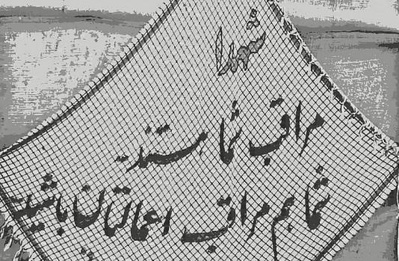 شهدا
مراقب شما هستند
شما هم مراقب اعمالتان باشید